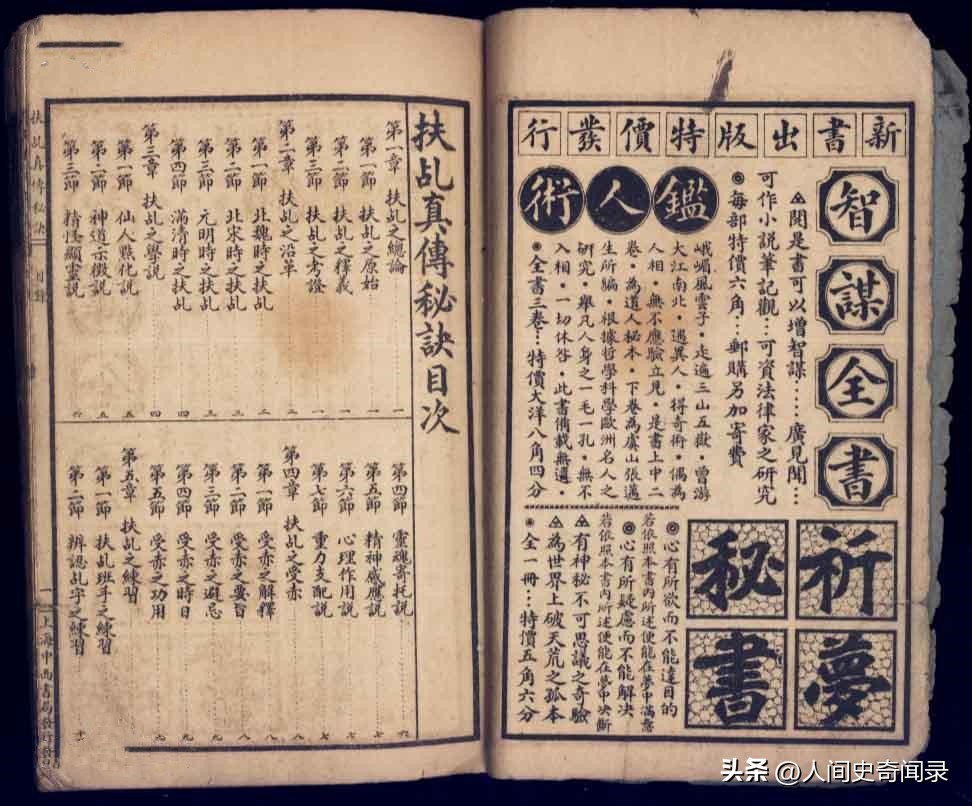 新書出版特價發行
智謀全書
▲閱是書可以增智謀……廣見聞…
可作小說筆記觀…可資法律家之研究
◉每部特價六角…郵購另加寄費
鑑人術
峨嵋風雲子·走遍三山五嶽·曾游
大江南北·遇異人·得奇術·偶為
人相·無不應驗立見·是書上中二
卷·為道人秘本·下卷為虞山張邁
生所騙·根據哲學科學歐洲名人之
研究·舉凡人身之一毛一孔·無不
入相·一切休咎·此書備載無遺·
◉全書三卷…特價大洋八角四分
祈夢秘書
◎心有所欲而不能達目的
若依照本書內所述便能在夢中滿意
◎心有所疑慮而不能解決
若依照本書內所述便能在夢中決斷
▲有神秘不可思議之奇驗
▲為世界上破天荒之孤本
◉全一冊…特價五角六分
扶乩真傳秘訣目次
第一章 扶乩之總論
第一節 扶乩之原始
第二節 扶乩之釋義
第三節 扶乩之考證
第二章 扶乩之沿革
第一節 北魏時之扶乩
第二節 北宋時之扶乩
第三節 元明時之扶乩
第四節 滿清時之扶乩
第三章 扶乩之學說
第一節 仙人點化說
第二節 神道示徵說
第三節 精怪顯靈說
第四節 靈魂寄托說
第五節 精神感應說
第六節 心理作用說
第七節 重力支配說
第四章 扶乩之受赤
第一節 受赤之解釋
第二節 受赤之要旨
第三節 受赤之避忌
第四節 受赤之時日
第五節 受赤之功用
第五章 扶乩之練習
第一節 扶乩班手之練習
第二節 辨認乩字之練習
扶乩真傳秘訣 目錄
一 上海中西書局發行
头条 @人间史奇闻录